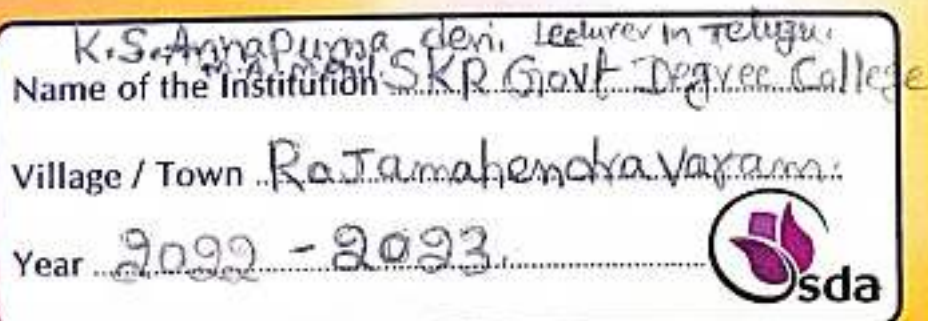 K.S. Annapurna devi, Lecturer in Telugu.
M.A. M.Phil.
Name of the Institution SKR Govt Degree College
Village / Town RaJamahendravaram.
Year 2022 - 2023.
sda